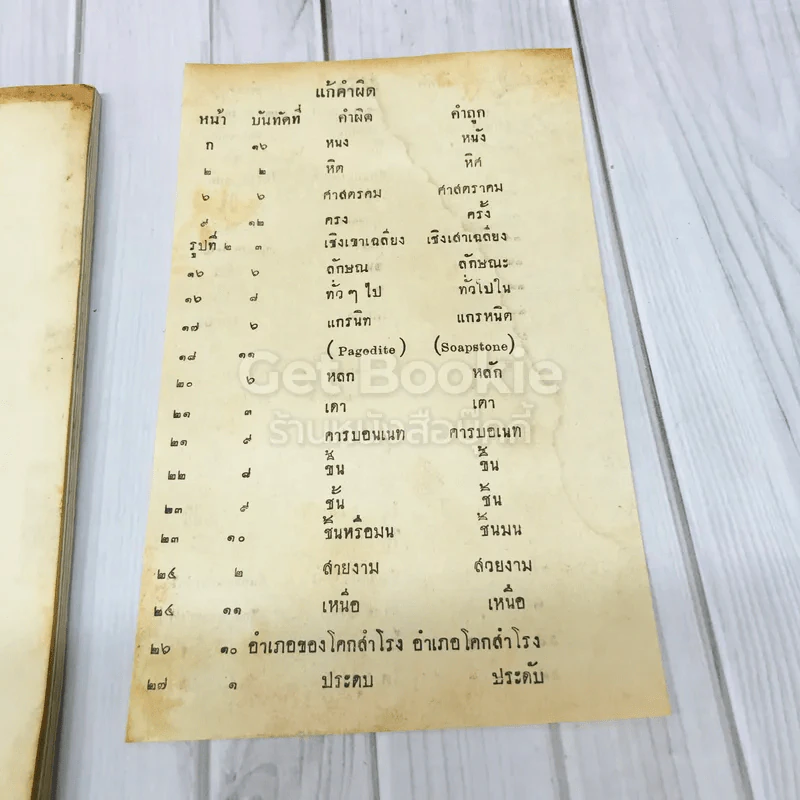 แก้คำผิด
หน้า บันทัดที่ คำผิด คำถูก
ก ๑๖ หนง หนัง
๒ ๒ หิต หิศ
๖ ๖ ศาสตรคม ศาสตราคม
๙ ๑๒ ครง ครั้ง
รูปที่ ๒ ๓ เชิงเขาเฉลียง เชิงเสาเฉลียง
๑๖ ๖ ลักษณ ลักษณะ
๑๖ ๗ ทั่วๆ ไป ทั่วไปใน
๑๗ ๖ แกรนิท แกรหนิต
๑๘ ๑๑ (Pagedite) (Soapstone)
๒๐ ๖ หลก หลัก
๒๑ ๓ เดา เตา
๒๑ ๙ คารบอนเนท คารบอเนท
๒๒ ๘ ขึ้น ชิ้น
๒๓ ๙ ชั้น ชิ้น
๒๓ ๑๐ ชิ้นหรือมน ชิ้นมน
๒๔ ๒ สายงาม สวยงาม
๒๔ ๑๑ เหนือ เหนือ
๒๖ ๑๐ อำเภอของโคกสำโรง อำเภอโคกสำโรง
๒๗ ๑ ประดบ ประดับ
Get Bookie
ร้านหนังสือบุ๊กกี้